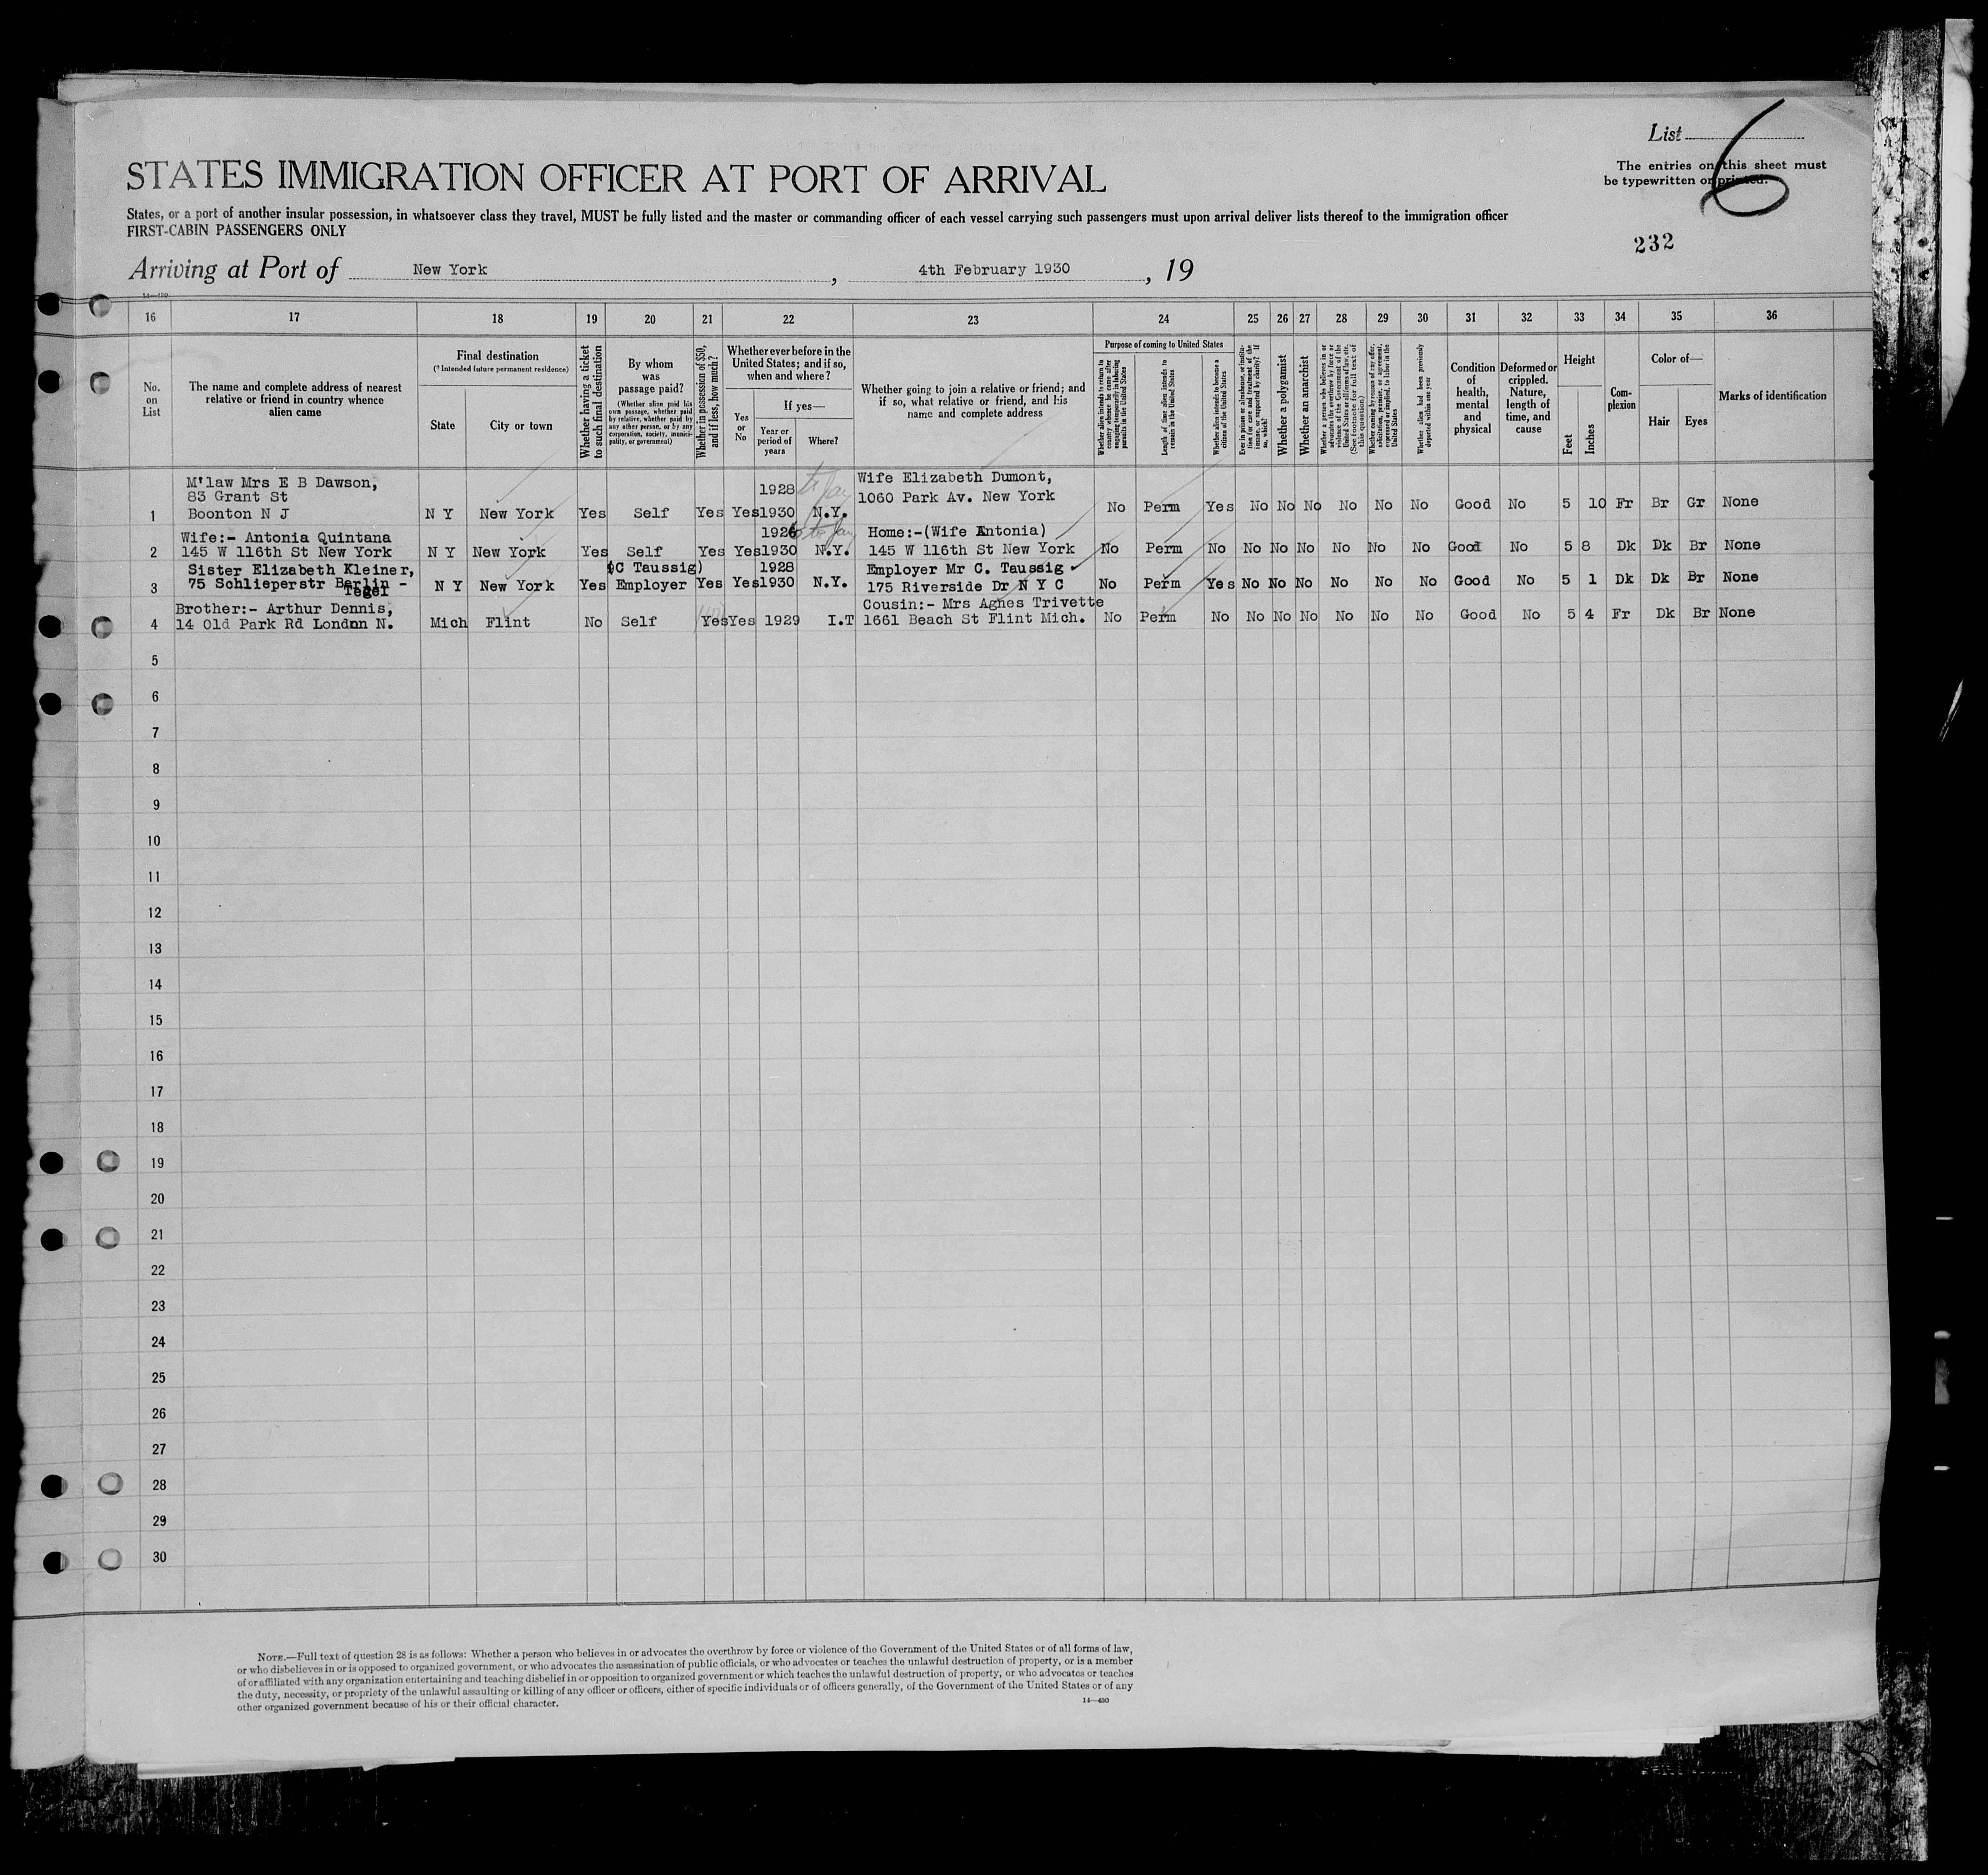 List 6
The entries on this sheet must
be typewritten or printed.
STATES IMMIGRATION OFFICER AT PORT OF ARRIVAL
States, or a port of another insular possession, in whatsoever class they travel, MUST be fully listed and the master or commanding officer of each vessel carrying such passengers must upon arrival deliver lists thereof to the immigration officer
FIRST-CABIN PASSENGERS ONLY
232
Arriving at Port of New York, 4th February 1930, 19
14—430
16 17 18 19 20 21 22 23 24 25 26 27 28 29 30 31 32 33 34 35 36
No. on List
The name and complete address of nearest relative or friend in country whence alien came
Final destination
(* Intended future permanent residence)
State
City or town
Whether having a ticket to such final destination
By whom was passage paid?
(Whether alien paid his own passage, whether paid by relative, whether paid by any other person, or by any corporation, society, municipality, or government)
Whether in possession of $50, and if less, how much?
Whether ever before in the United States; and if so, when and where?
Yes or No
If yes—
Year or period of years
Where?
Whether going to join a relative or friend; and if so, what relative or friend, and his name and complete address
Purpose of coming to United States
Whether alien intends to return to country whence he came after engaging temporarily in laboring pursuits in the United States
Length of time alien intends to remain in the United States
Whether alien intends to become a citizen of the United States
Ever in prison or almshouse, or institution for care and treatment of the insane, or supported by charity? If so, which?
Whether a polygamist
Whether an anarchist
Whether a person who believes in or advocates the overthrow by force or violence of the Government of the United States or all forms of law, etc. (See footnote for full text of this question)
Whether coming by reason of any offer, solicitation, promise, or agreement, expressed or implied, to labor in the United States
Whether alien had been previously deported within one year
Condition of health, mental and physical
Deformed or crippled. Nature, length of time, and cause
Height
Feet
Inches
Complexion
Color of—
Hair
Eyes
Marks of identification
M'law Mrs E B Dawson, 1928 Wife Elizabeth Dumont,
83 Grant St 1060 Park Av. New York
1 Boonton N J N Y New York Yes Self Yes Yes 1930 N.Y. No Perm Yes No No No No No No Good No 5 10 Fr Br Gr None
Wife:- Antonia Quintana 1926 Home:-(Wife Antonia)
2 145 W 116th St New York N Y New York Yes Self Yes Yes 1930 N.Y. 145 W 116th St New York No Perm No No No No No No No Good No 5 8 Dk Dk Br None
Sister Elizabeth Kleiner, (C Taussig) 1928 Employer Mr C. Taussig
3 75 Schlieperstr Berlin - Tegel N Y New York Yes Employer Yes Yes 1930 N.Y. 175 Riverside Dr N Y C No Perm Yes No No No No No No Good No 5 1 Dk Dk Br None
Brother:- Arthur Dennis, Cousin:- Mrs Agnes Trivette
4 14 Old Park Rd London N. Mich Flint No Self Yes Yes 1929 I.T 1661 Beach St Flint Mich. No Perm No No No No No No No Good No 5 4 Fr Dk Br None
5
6
7
8
9
10
11
12
13
14
15
16
17
18
19
20
21
22
23
24
25
26
27
28
29
30
NOTE.—Full text of question 28 is as follows: Whether a person who believes in or advocates the overthrow by force or violence of the Government of the United States or of all forms of law,
or who disbelieves in or is opposed to organized government, or who advocates the assassination of public officials, or who advocates or teaches the unlawful destruction of property, or is a member
of or affiliated with any organization entertaining and teaching disbelief in or opposition to organized government or which teaches the unlawful destruction of property, or who advocates or teaches
the duty, necessity, or propriety of the unlawful assaulting or killing of any officer or officers, either of specific individuals or of officers generally, of the Government of the United States or of any
other organized government because of his or their official character.
14—430